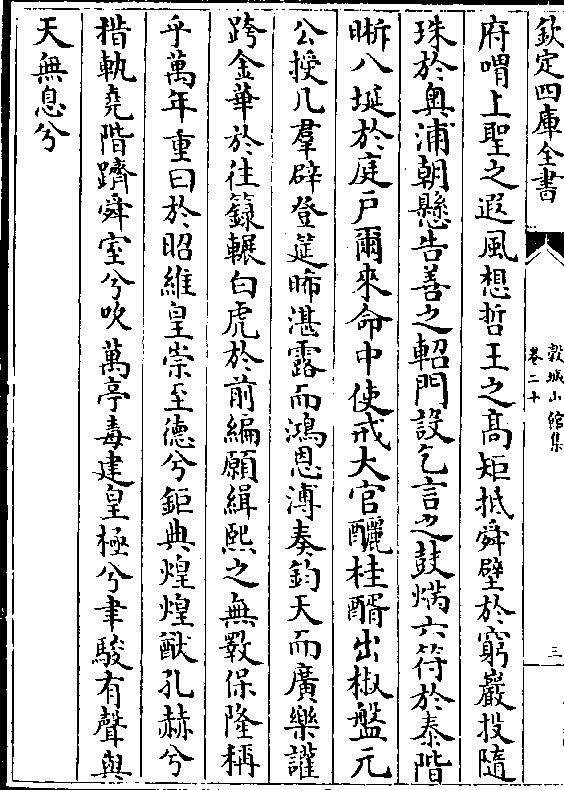 欽定四庫全書
穀城山館集
卷二十
三
府喟上聖之遐風想哲王之高矩抵舜璧於窮巖投隨
珠於奥浦朝懸告善之軺門設乞言之鼓熵六符於泰階
晰八埏於庭戶爾來命中使戒大官釃桂醑出椒盤元
公授几羣辟登筵晞湛露而鴻恩溥奏鈞天而廣樂讙
跨金華於往籙輾白虎於前編願緝熙之無斁保隆稱
乎萬年重曰於昭維皇崇至德兮鉅典煌煌猷孔赫兮
楷軌堯階躋舜室兮吹萬亭毒建皇極兮聿駿有聲與
天無息兮